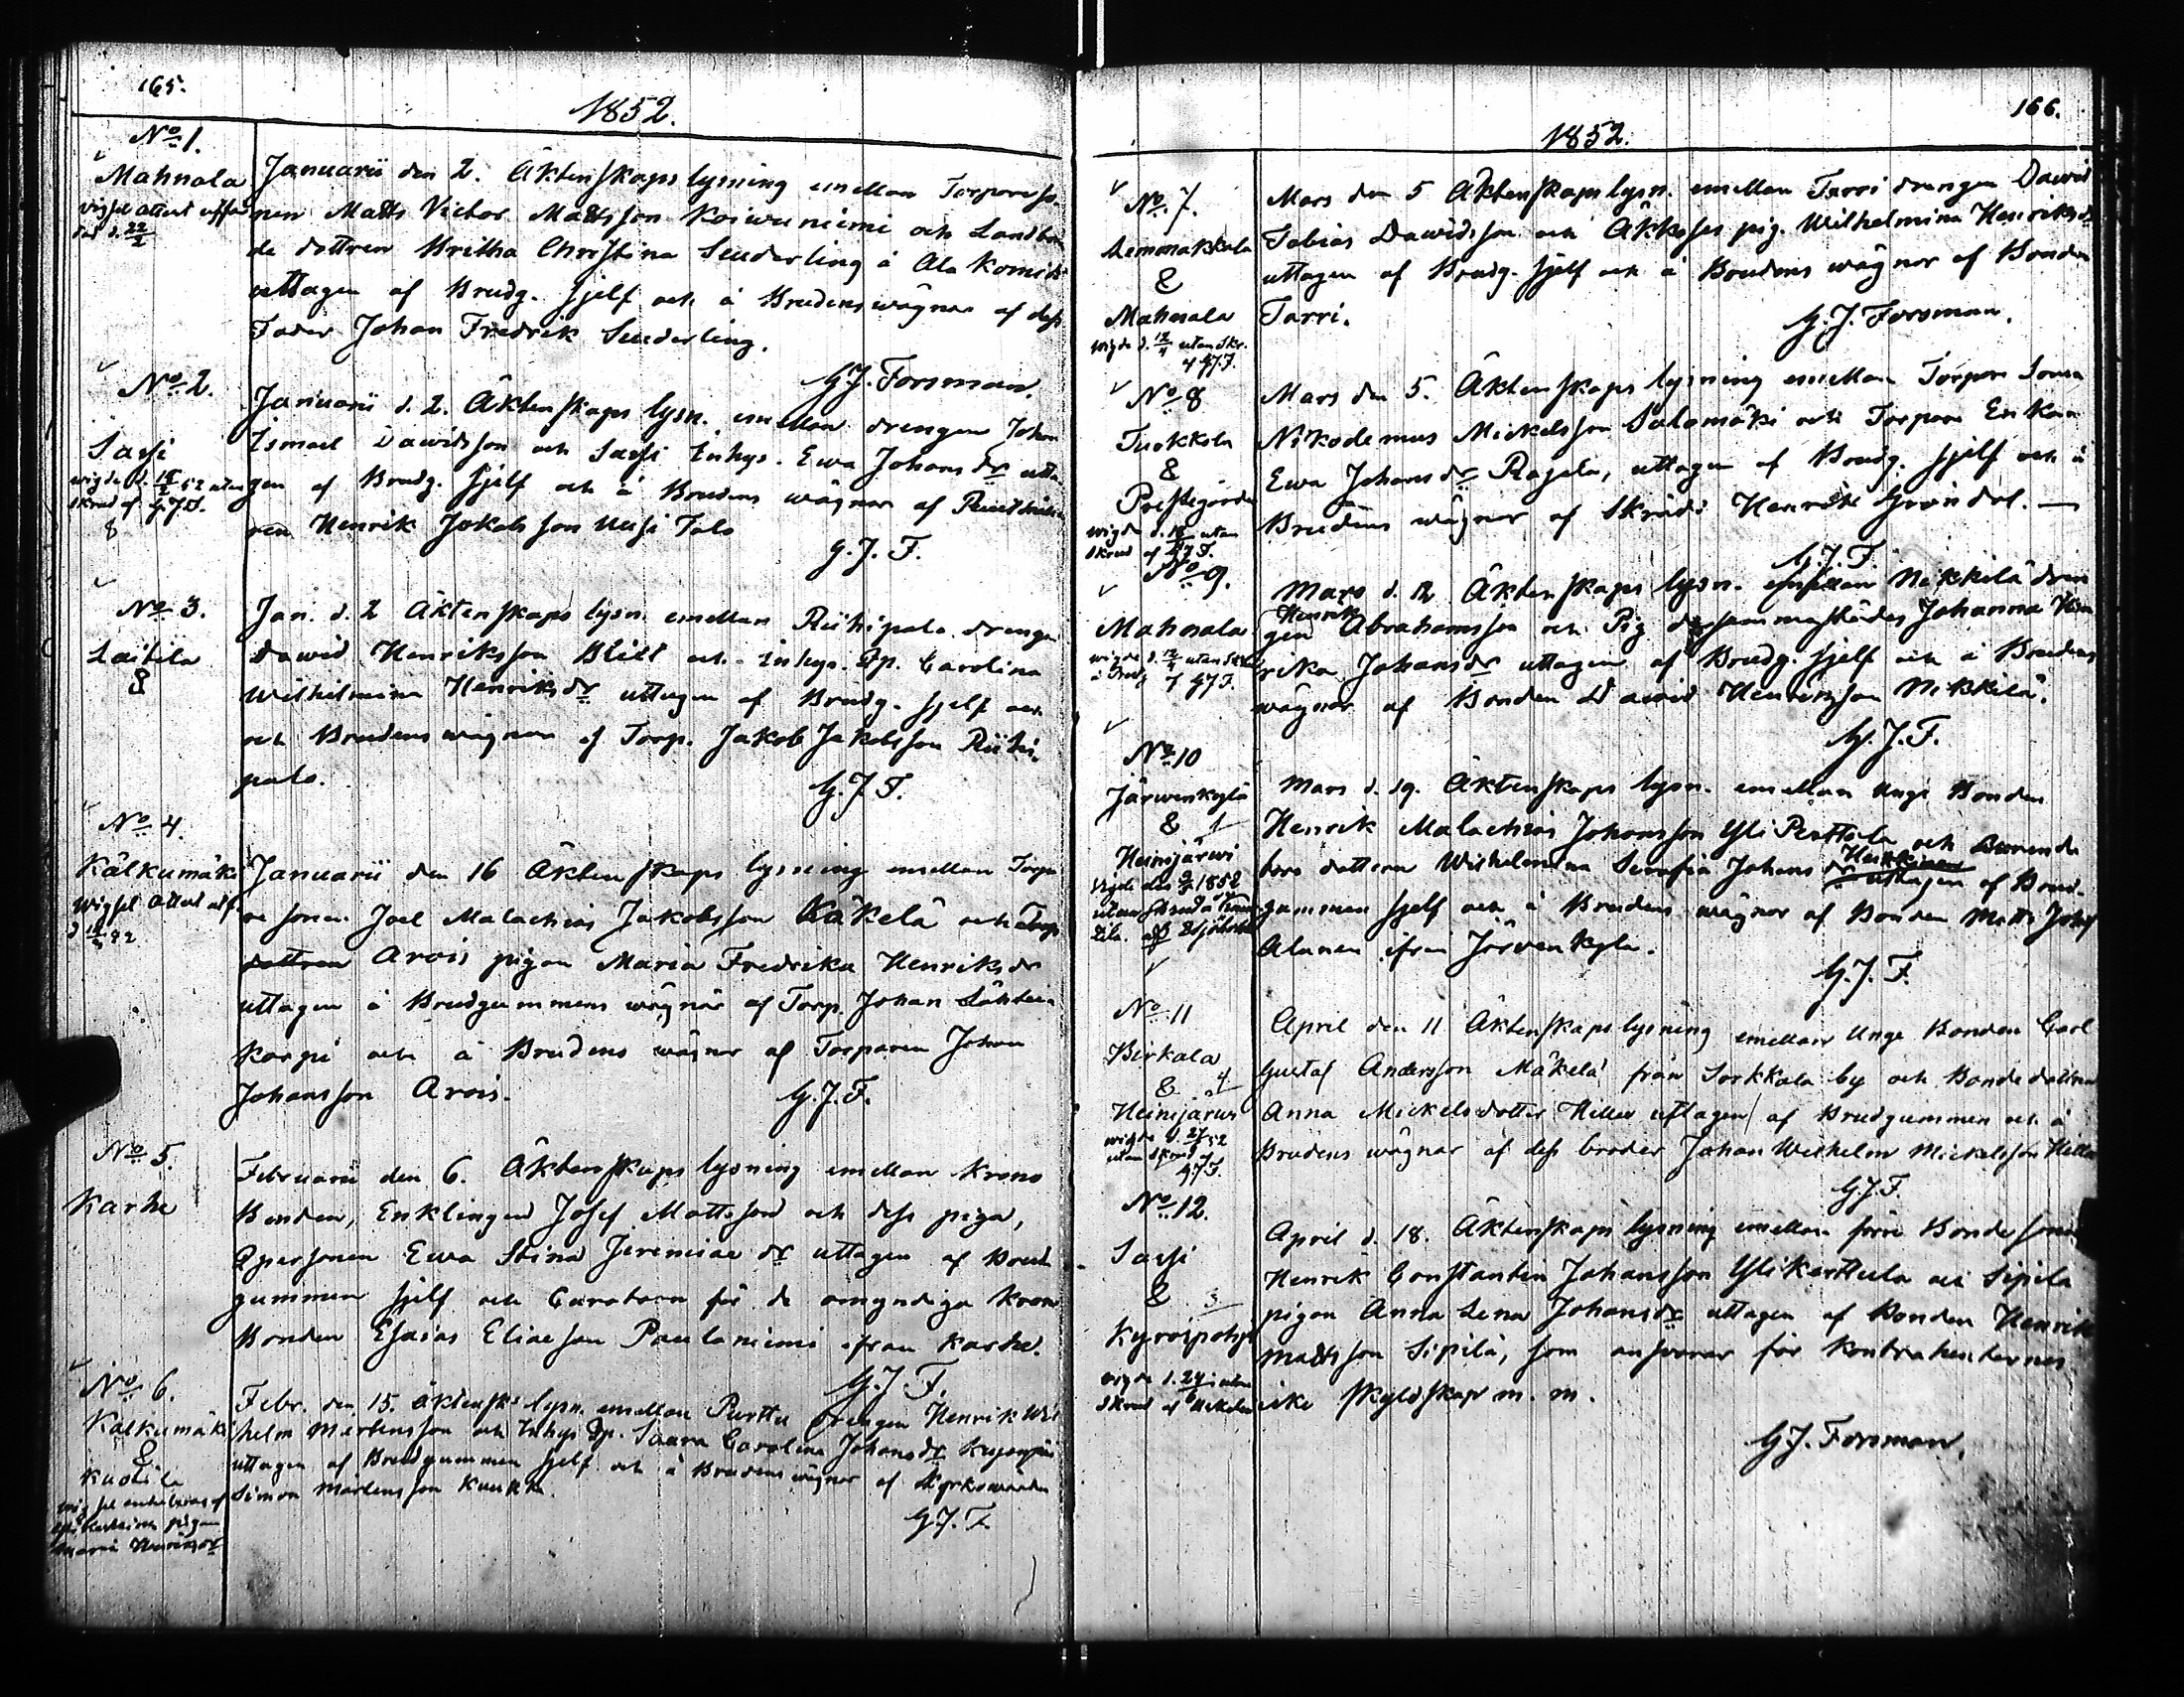 165.
1852.
No 1.
Mahnala
vigsel attest
d. 22/2
Januarii den 2. Äktenskaps lysning emellan Torpareso
nen Matts Victor Mattsson Koivuniemi och Landbon
de dottren Britha Christina Sunderling å Ala Komi
uttagen af Brudg. sjelf och å Brudens wägnar af dess
Fader Johan Fredrik Sunderling.
G.J. Forsman.
No 2.
Sasi
wigde d. 52 utan
skrud af G.J.F.
&
Januarii d. 2. Äktenskaps lysn. emellan drengen Johan
Ismael Dawidsson och Sasi Inhys. Ewa Johansdr utta
gen af Brudg. sjelf och å Brudens wägnar af
ren Henrik Jakobsson Uusi Talo
G.J.F.
No 3.
Laitila
&
Jan. d. 2 Äktenskaps lysn. emellan Riihipalo drengen
Dawid Henriksson Blill och Inhys. Qp. Carolina
Wilhelmina Henriksdr uttagen af Brudg. sjelf och
och Brudens wägnar af Torp. Jakob Jakobsson Riihi
palo.
G.J.F.
No 4.
Kälkumäki
Wigsel attest utf
Januarii den 16 Äktenskaps lysning emellan Torpa
re sonen Joel Malachias Jakobsson Käkelä och Torp
dottren Arois pigan Maria Fredrika Henriksdr
uttagen å Brudgummens wägnar af Torp. Johan Lähtein
korpi och å Brudens wägnar af Torparen Johan
Johansson Arois.
G.J.F.
No 5.
Karhe
Februarii den 6. Äktenskaps lysning emellan Krono
Bonden, Enklingen Josef Mattsson och dess piga,
Qpersonen Ewa Stina Jeremiaedr uttagen af Brud
gummen sjelf och Curatorn för de omyndiga Krono
Bonden Esaias Eliaesson Paulaniemi ifran Karhe.
G.J.F.
No 6.
Kälkumäki
&
Kuotila
Maria Henriksdr
Febr. den 15. Äktensk. lysn. emellan Perttu drengen Henrik Wil
helm Mårtensson och Inhys Qp. Saara Carolina Johansdr
uttagen af Brudgummen sjelf och å Brudens wägnar af Kyrkowärden
Simon Mårtensson Kuukka.
G.J.F.
166.
1852.
No 7.
Lemmakkala
&
Mahnala
wigde d. 12/4 utan skr.
af G.J.F.
Mars den 5 Äktenskaps lysn. emellan Tarri drengen Dawid
Tobias Dawidsson och Äkkses pig. Wilhelmina Henriksdr
uttagen af Brudg. sjelf och å Brudens wägnar af Bonden
Tarri.
G.J. Forsman.
No 8
Tuokkola
&
Prestegården
wigde d. utan
skrud af G.J.F.
Mars den 5. Äktenskaps lysning emellan Torpare Sonen
Nikodemus Mickelsson Salomäki och Torpare Enkan
Ewa Johansdr Ragela, uttagen af Brudg. sjelf och å
Brudens wägnar af Skräd. Henrik Gröndal.
G.J.F.
No 9.
Mahnala
wigde d. 12/4 utan skr
af G.J.F.
Mars d. 12 Äktenskaps lysn. emellan Nikkilä dren
gen Henrik Abrahamsson och Pig. dersammastädes Johanna Hen
rika Johansdr uttagen af Brudg. sjelf och å Brudens
wägnar af Bonden Dawid Henriksson Nikkilä.
G.J.F.
No 10
Järwenkylä
& 1
Heinijärwi
1852
Mars d. 19. Äktenskaps lysn. emellan Unge Bonden
Henrik Malachias Johansson Yli Perttula och Bonde
dottern Wilhelmina Serafia Johansdr Heikkinen uttagen af Brud-
gummen sjelf och å Brudens wägnar af Bonden Matts Josef
Alanen ifrån Järvenkylä.
G.J.F.
No 11
Birkala
& 4
Heinijärwi
wigde d. 27/ 52
utan skrud af
G.J.F.
April den 11 Äktenskaps lysning emellan Unge Bonden Carl
Gustaf Andersson Mäkelä från Sorkkala by och Bonde dottren
Anna Mickelsdotter Hiller uttagen af Brudgummen och å
Brudens wägnar af dess broder Johan Wilhelm Mickelsson Hiller
G.J.F.
No 12.
Sasi
& 3
Kyröspohja
wigde d. 24/6 utan
skrud af
April d. 18. Äktenskaps lysning emellan förre Bonde sonen
Henrik Constantin Johansson Yli Kerttula och Sipilä
pigan Anna Lena Johansdr uttagen af Bonden Henrik
Mattsson Sipilä, som answarar för Kontrahenternes
icke skyldskap m. m.
G.J. Forsman.